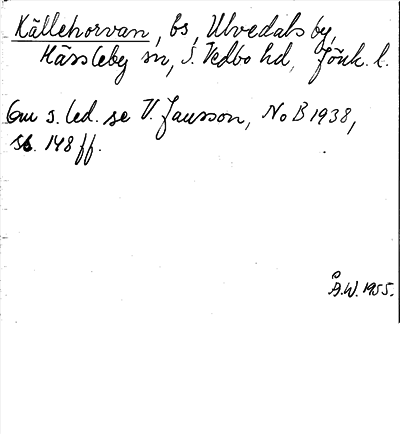 Källehorvan, bs, Ulvedals by,
Hässleby sn, S. Vedbo hd, Jönk. l.
Om s. led. se V. Jansson, NoB 1938,
s. 148 ff.
Å.W. 1955.